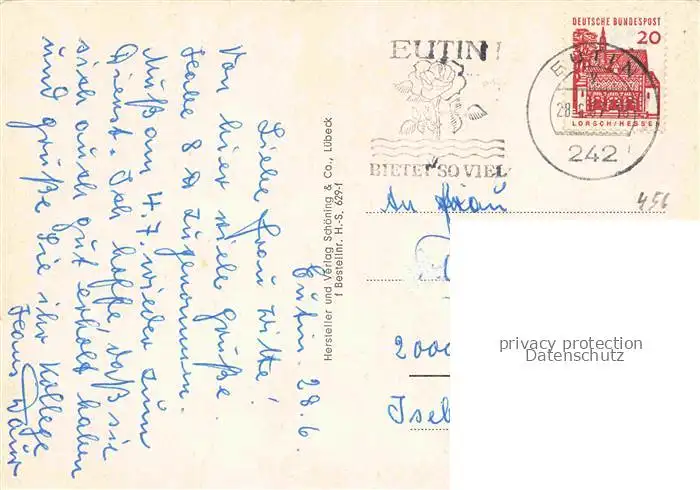 Eutin. 28.6.
Liebe Frau Witte!
Von hier viele Grüße.
Habe 8 ℔ zugenommen.
Muß am 4.7. wieder zum
Dienst. Ich hoffe daß sie
sich auch gut erholt haben
und grüße Sie ihr Kollege
Hans
Hersteller und Verlag Schöning & Co., Lübeck
f Bestellnr. H.-S. 629-f
EUTIN!
BIETET SO VIEL
DEUTSCHE BUNDESPOST
20
LORSCH/HESSEN
EUTIN
242
An Frau
2000
Iseb
456
privacy protection
Datenschutz